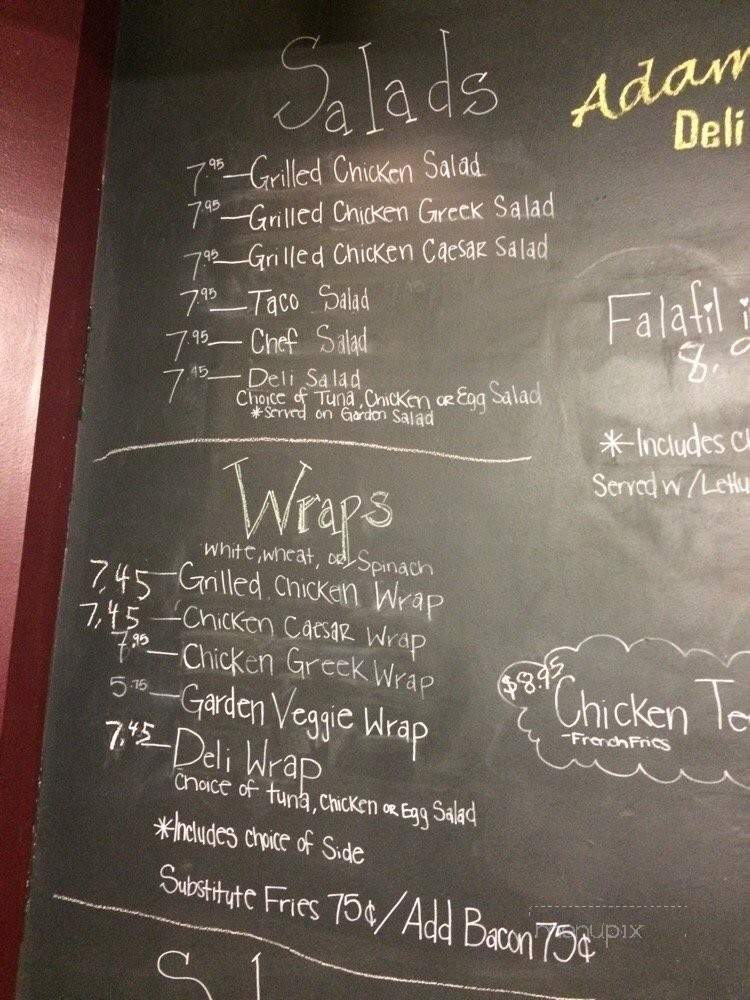 Salads
7.95—Grilled Chicken Salad
7.95—Grilled Chicken Greek Salad
7.95—Grilled Chicken Caesar Salad
7.95—Taco Salad
7.95—Chef Salad
7.45—Deli Salad
Choice of Tuna, Chicken or Egg Salad
*Served on Garden Salad
Wraps
White, wheat, or Spinach
7.45—Grilled Chicken Wrap
7.45—Chicken Caesar Wrap
7.95—Chicken Greek Wrap
5.75—Garden Veggie Wrap
7.45—Deli Wrap
Choice of tuna, Chicken or Egg Salad
*Includes choice of Side
Substitute Fries 75¢/Add Bacon 75¢
Adam
Deli
Falafil i
8.9
*Includes c
Served w/Lettu
$8.95
Chicken Te
-French Fries
menupix